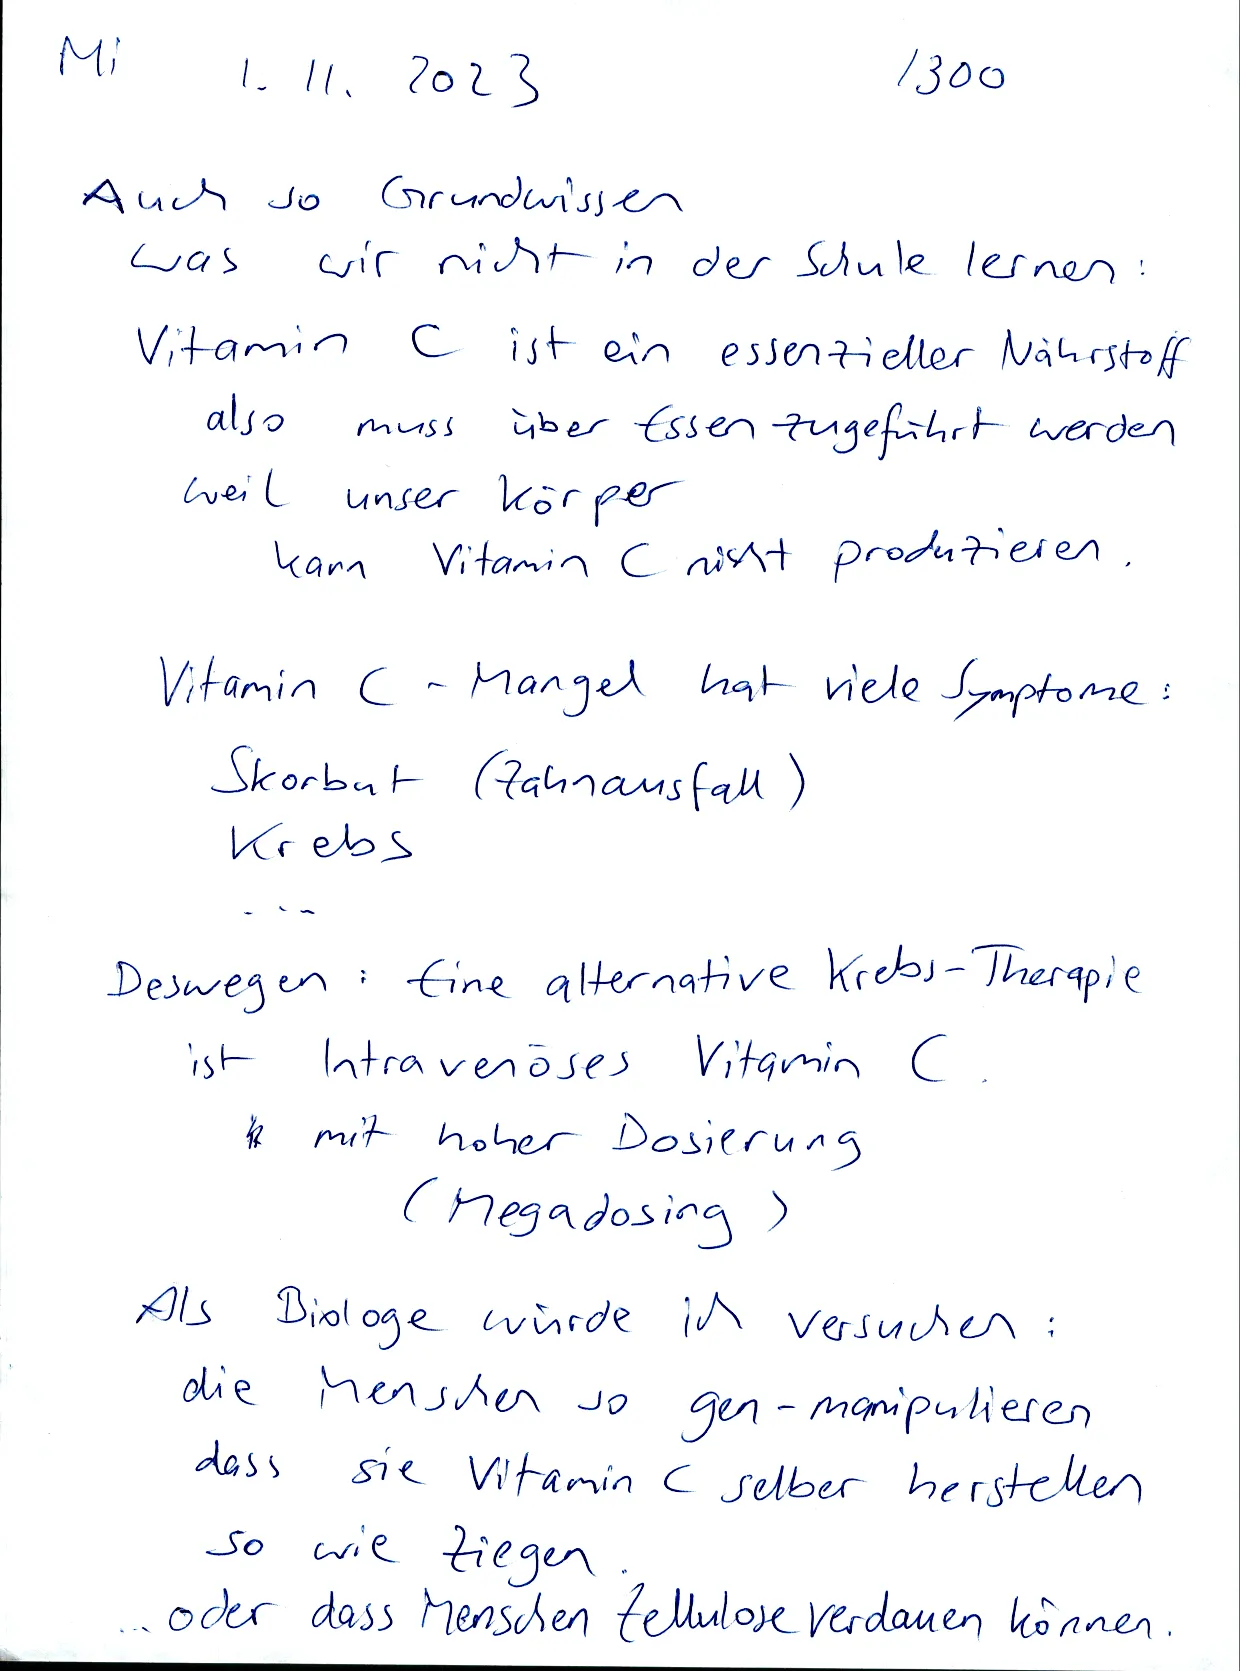 Mi 1. 11. 2023 1300
Auch so Grundwissen
was wir nicht in der Schule lernen:
Vitamin C ist ein essenzieller Nährstoff
also muss über Essen zugeführt werden
weil unser Körper
kann Vitamin C nicht produzieren.
Vitamin C - Mangel hat viele Symptome:
Skorbut (Zahnausfall)
Krebs
...
Deswegen: Eine alternative Krebs-Therapie
ist Intravenöses Vitamin C.
mit hoher Dosierung
(Megadosing)
Als Biologe würde ich versuchen:
die Menschen so gen-manipulieren
dass sie Vitamin C selber herstellen
so wie Ziegen.
... oder dass Menschen Zellulose verdauen können.